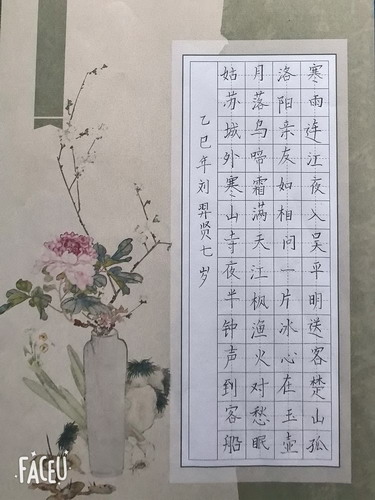 寒雨连江夜入吴平明送客楚山孤
洛阳亲友如相问一片冰心在玉壶
月落乌啼霜满天江枫渔火对愁眠
姑苏城外寒山寺夜半钟声到客船
乙巳年刘羿贤七岁
FACEU